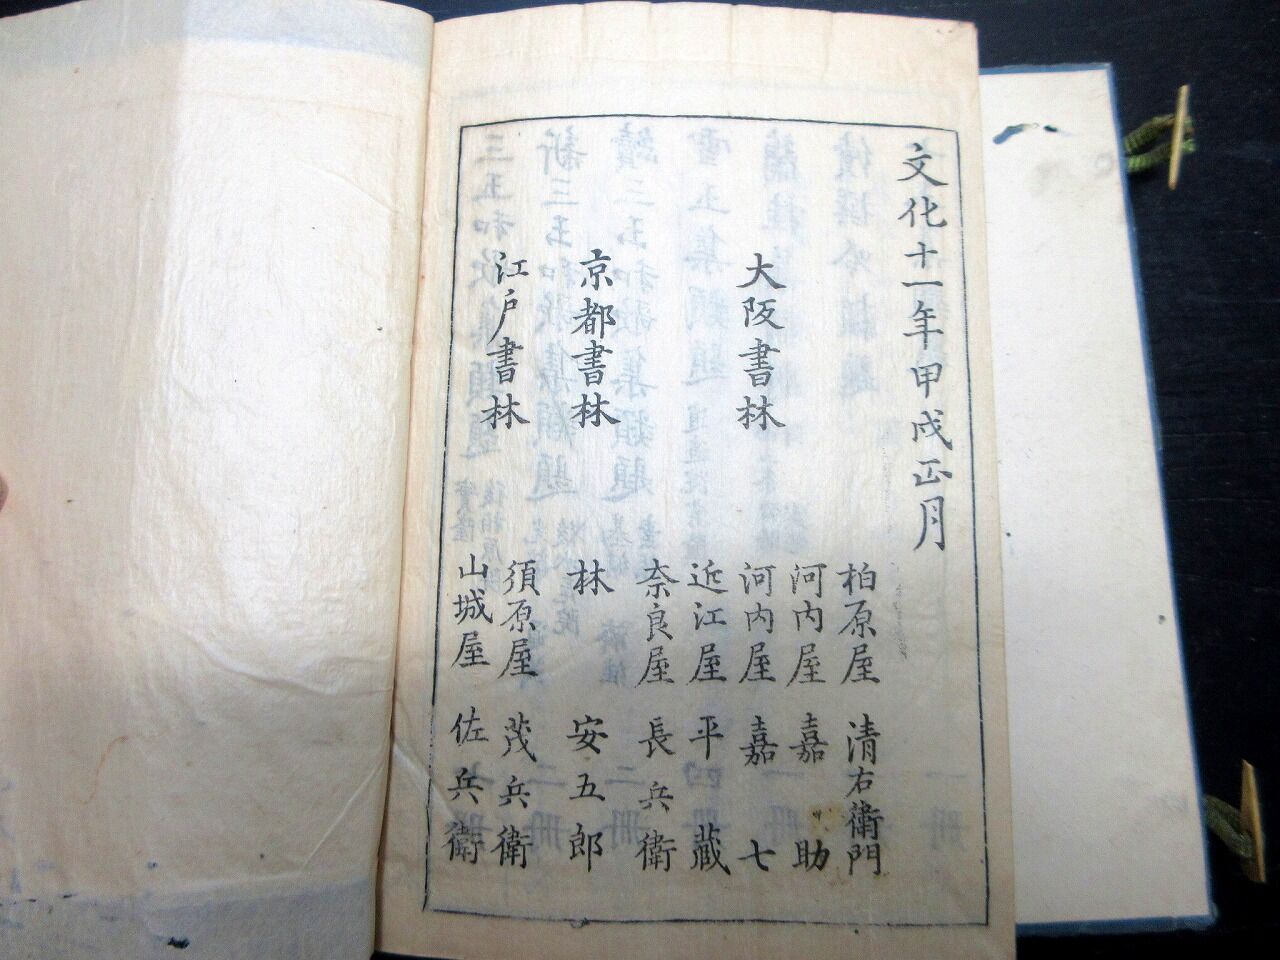 文化十一年甲戌正月
大阪書林
柏原屋清右衛門
河内屋嘉助
河内屋嘉七
近江屋平蔵
奈良屋長兵衛
京都書林
林安五郎
江戸書林
須原屋茂兵衛
山城屋佐兵衛